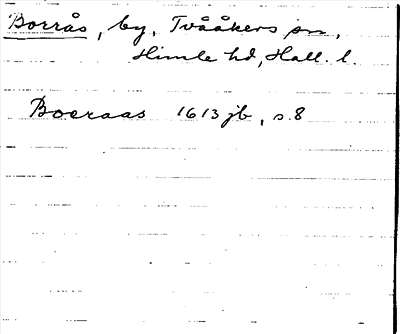 Borrås, by, Tvååkers sn,
Himle hd, Hall. l.
Boeraas 1613 jb, s. 8